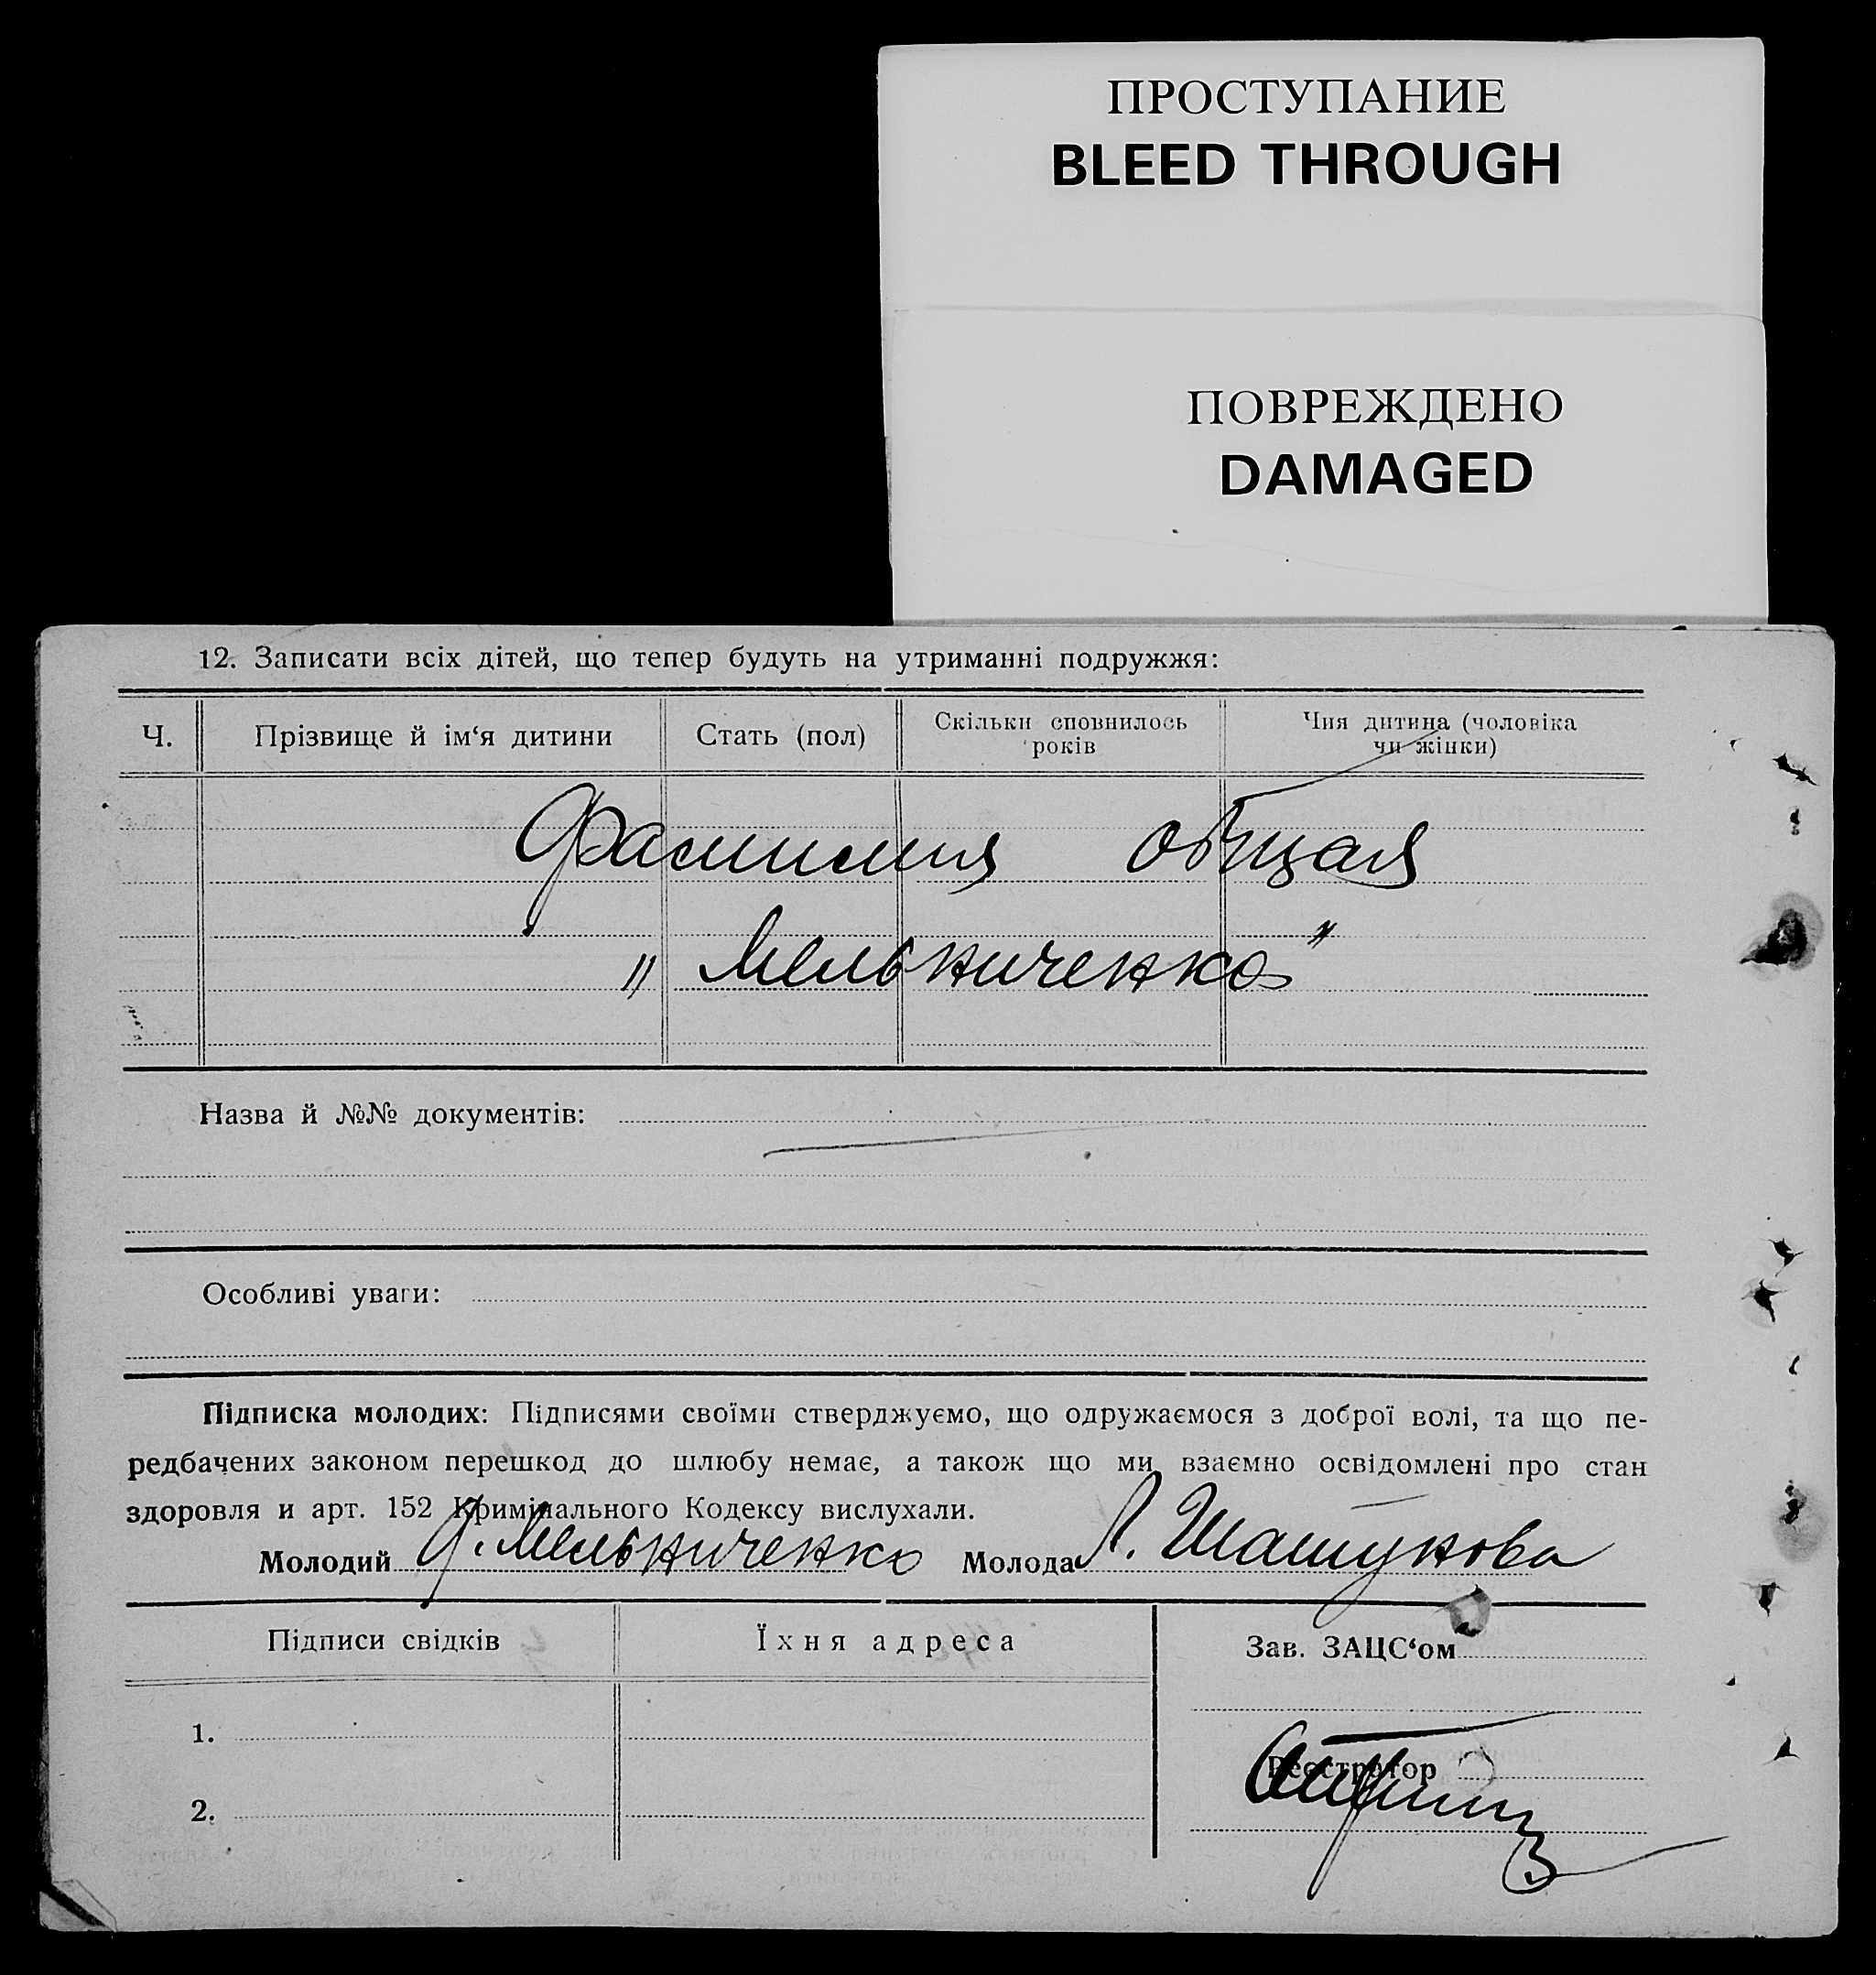 ПРОСТУПАНИЕ
BLEED THROUGH
ПОВРЕЖДЕНО
DAMAGED
12. Записати всіх дітей, що тепер будуть на утриманні подружжя:
Ч. Прізвище й ім‘я дитини Стать (пол) Скільки сповнилось років Чия дитина (чоловіка чи жінки)
Фамилия общая
„ Мельниченко “
Назва й №№ документів:
Особливі уваги:
Підписка молодих: Підписями своїми стверджуємо, що одружаємося з доброї волі, та що пе-
редбачених законом перешкод до шлюбу немає, а також що ми взаємно освідомлені про стан
здоровля и арт. 152 Кримінального Кодексу вислухали.
Молодий Мельниченко Молода Л. Шатунова
Підписи свідків Їхня адреса Зав. ЗАЦС‘ом
1.
Реєстратор
2.